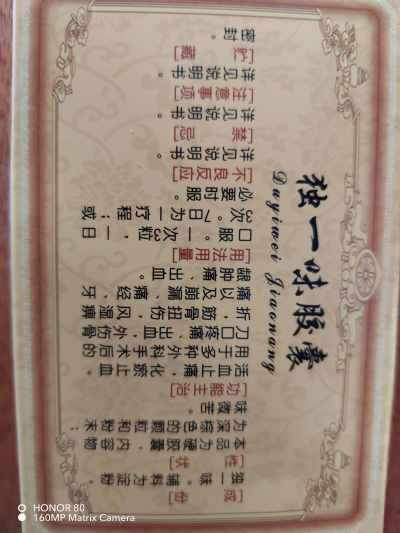 独一味胶囊
Duyiwei Jiaonang
[成 份]
独一味。辅料为淀粉。
[性 状]
本品为硬胶囊，内容物
为深棕色的颗粒和粉末；
味微苦。
[功能主治]
活血止痛，化瘀止血。
用于多种外科手术后的
刀口疼痛、出血，外伤骨
折，筋骨扭伤，风湿痹
痛以及崩漏、痛经、牙
龈肿痛、出血。
[用法用量]
口服。一次3粒，一日
3次。7日为一疗程；或
必要时服。
[不良反应]
详见说明书。
[禁 忌]
详见说明书。
[注意事项]
详见说明书。
[贮 藏]
密封。
HONOR 80
160MP Matrix Camera